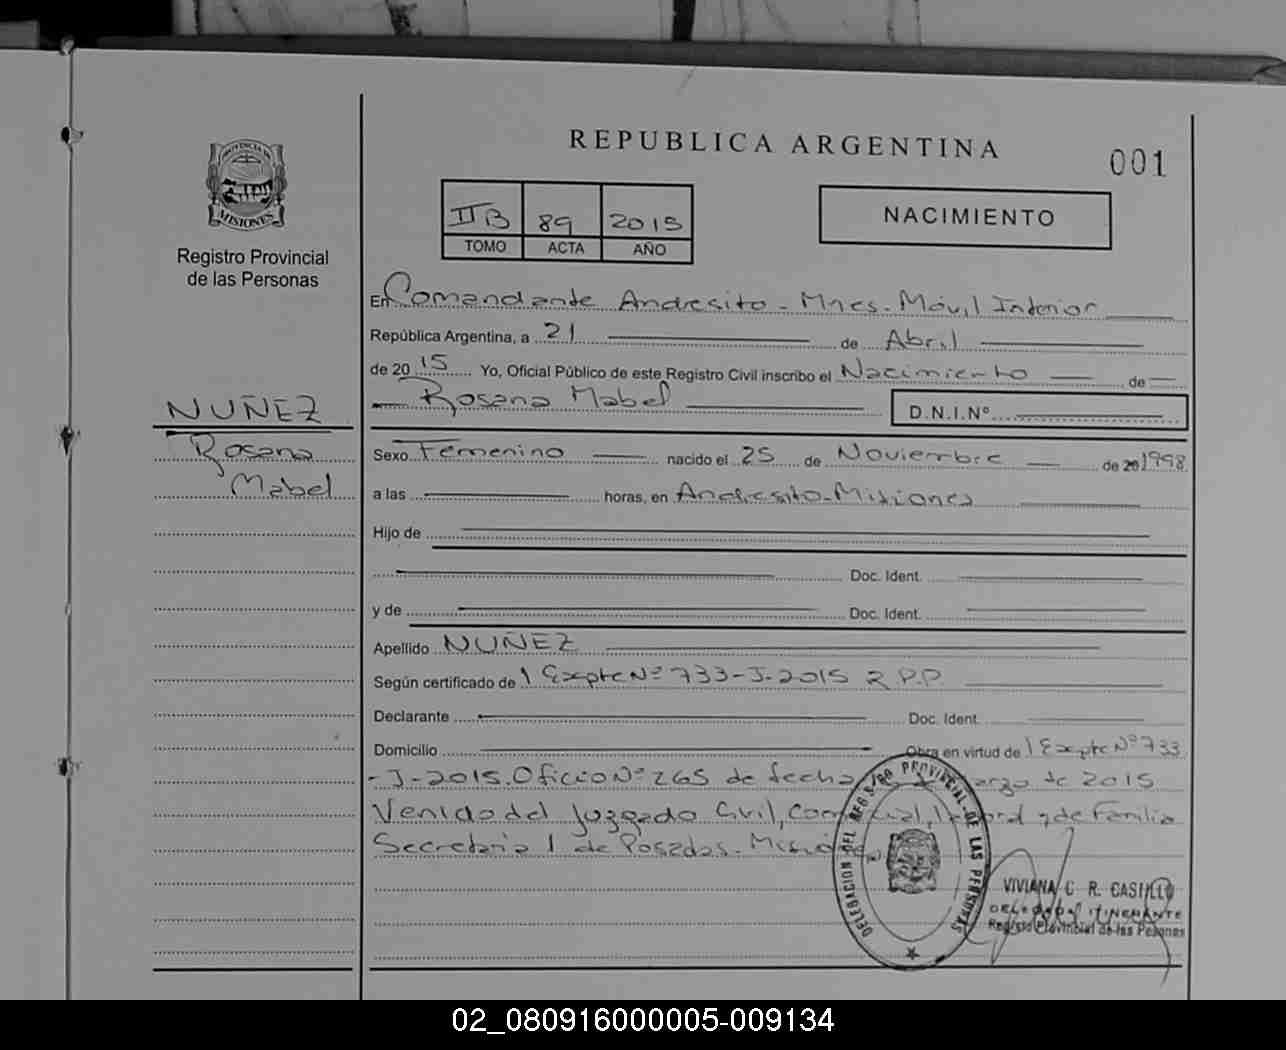 REPUBLICA ARGENTINA
001
PROVINCIA DE
MISIONES
Registro Provincial
de las Personas
IIB 89 2015
TOMO ACTA AÑO
NACIMIENTO
En Comandante Andresito - Mnes. Móvil Interior
República Argentina, a 21 de Abril
de 20 15 Yo, Oficial Público de este Registro Civil inscribo el Nacimiento de
Rosana Mabel D.N.I.Nº
NUÑEZ
Rosana
Mabel
Sexo Femenino nacido el 25 de Noviembre de 1998
a las horas, en Andresito - Misiones
Hijo de
Doc. Ident.
y de Doc. Ident.
Apellido NUÑEZ
Según certificado de Expte Nº 733-J-2015 R.P.P.
Declarante Doc. Ident.
Domicilio Obra en virtud de Expte Nº 733
-J-2015. Oficio Nº 265 de fecha de 2015
Venido del Juzgado Civil, Comercial, Laboral y de Familia
Secretaria 1 de Posadas - Misiones
DELEGACION DEL REGISTRO PROVINCIAL DE LAS PERSONAS
VIVIANA C. R. CASTILLO
DELEGADA ITINERANTE
Registro Provincial de las Personas
02_080916000005-009134